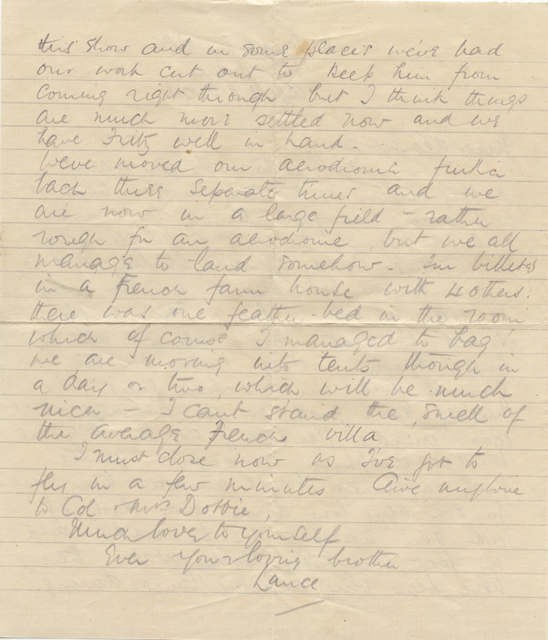 this show and in some places we've had
our work cut out to keep him from
coming right through but I think things
are much more settled now and we
have Fritz well in hand.
We've moved our aerodrome further
back three separate times and we
are now in a large field - rather
rough for an aerodrome, but we all
manage to land somehow. I'm billeted
in a French farm house with 4 others.
there was one feather-bed in the room
which of course I managed to bag
we are moving into tents though in
a day or two, which will be much
nicer - I cant stand the smell of
the average French villa
I must close now as I've got to
fly in a few minutes Give my love
to Col & Mrs Dobbie,
Much love to yourself
Ever your loving brother
Lance